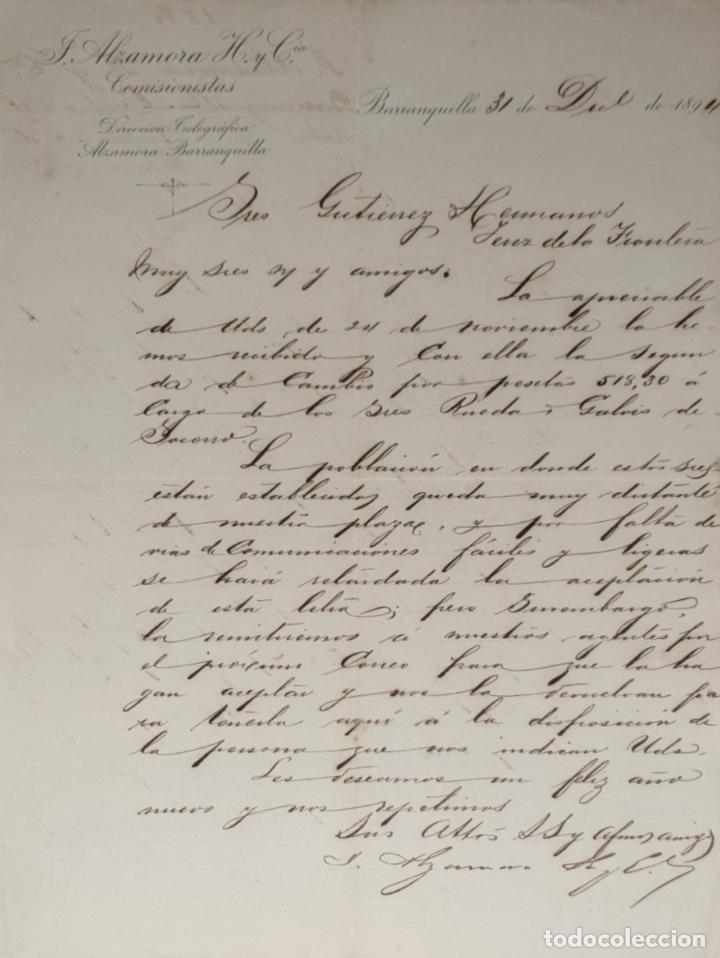 J. Alzamora H. y Cia
Comisionistas
Direccion Telegráfica
"Alzamora" Barranquilla
Barranquilla 31 de Dice de 1894
Sres Gutierrez Hermanos
Jerez de la Frontera
Muy Sres n/ y amigos:
La apreciable
de Uds de 24 de noviembre la he-
mos recibido y con ella la segun
da de Cambio por pesetas 518,30 á
Cargo de los Sres Rueda & Galvis de
Socorro.
La población en donde estos Sres
están establecidos queda muy distante
de nuestra plaza, y por falta de
vias de Comunicaciones fáciles y ligeras
se hará retardada la aceptación
de esta letra; pero sinembargo,
la remitiremos á nuestros agentes por
el próximo Correo para que la ha
gan aceptar y nos la devuelvan pa
ra tenerla aquí á la disposición de
la persona que nos indican Uds.
Les deseamos un feliz año
nuevo y nos repetimos
Sus Attos SS y afmos amigos
J. Alzamora H y C.
todocoleccion.net